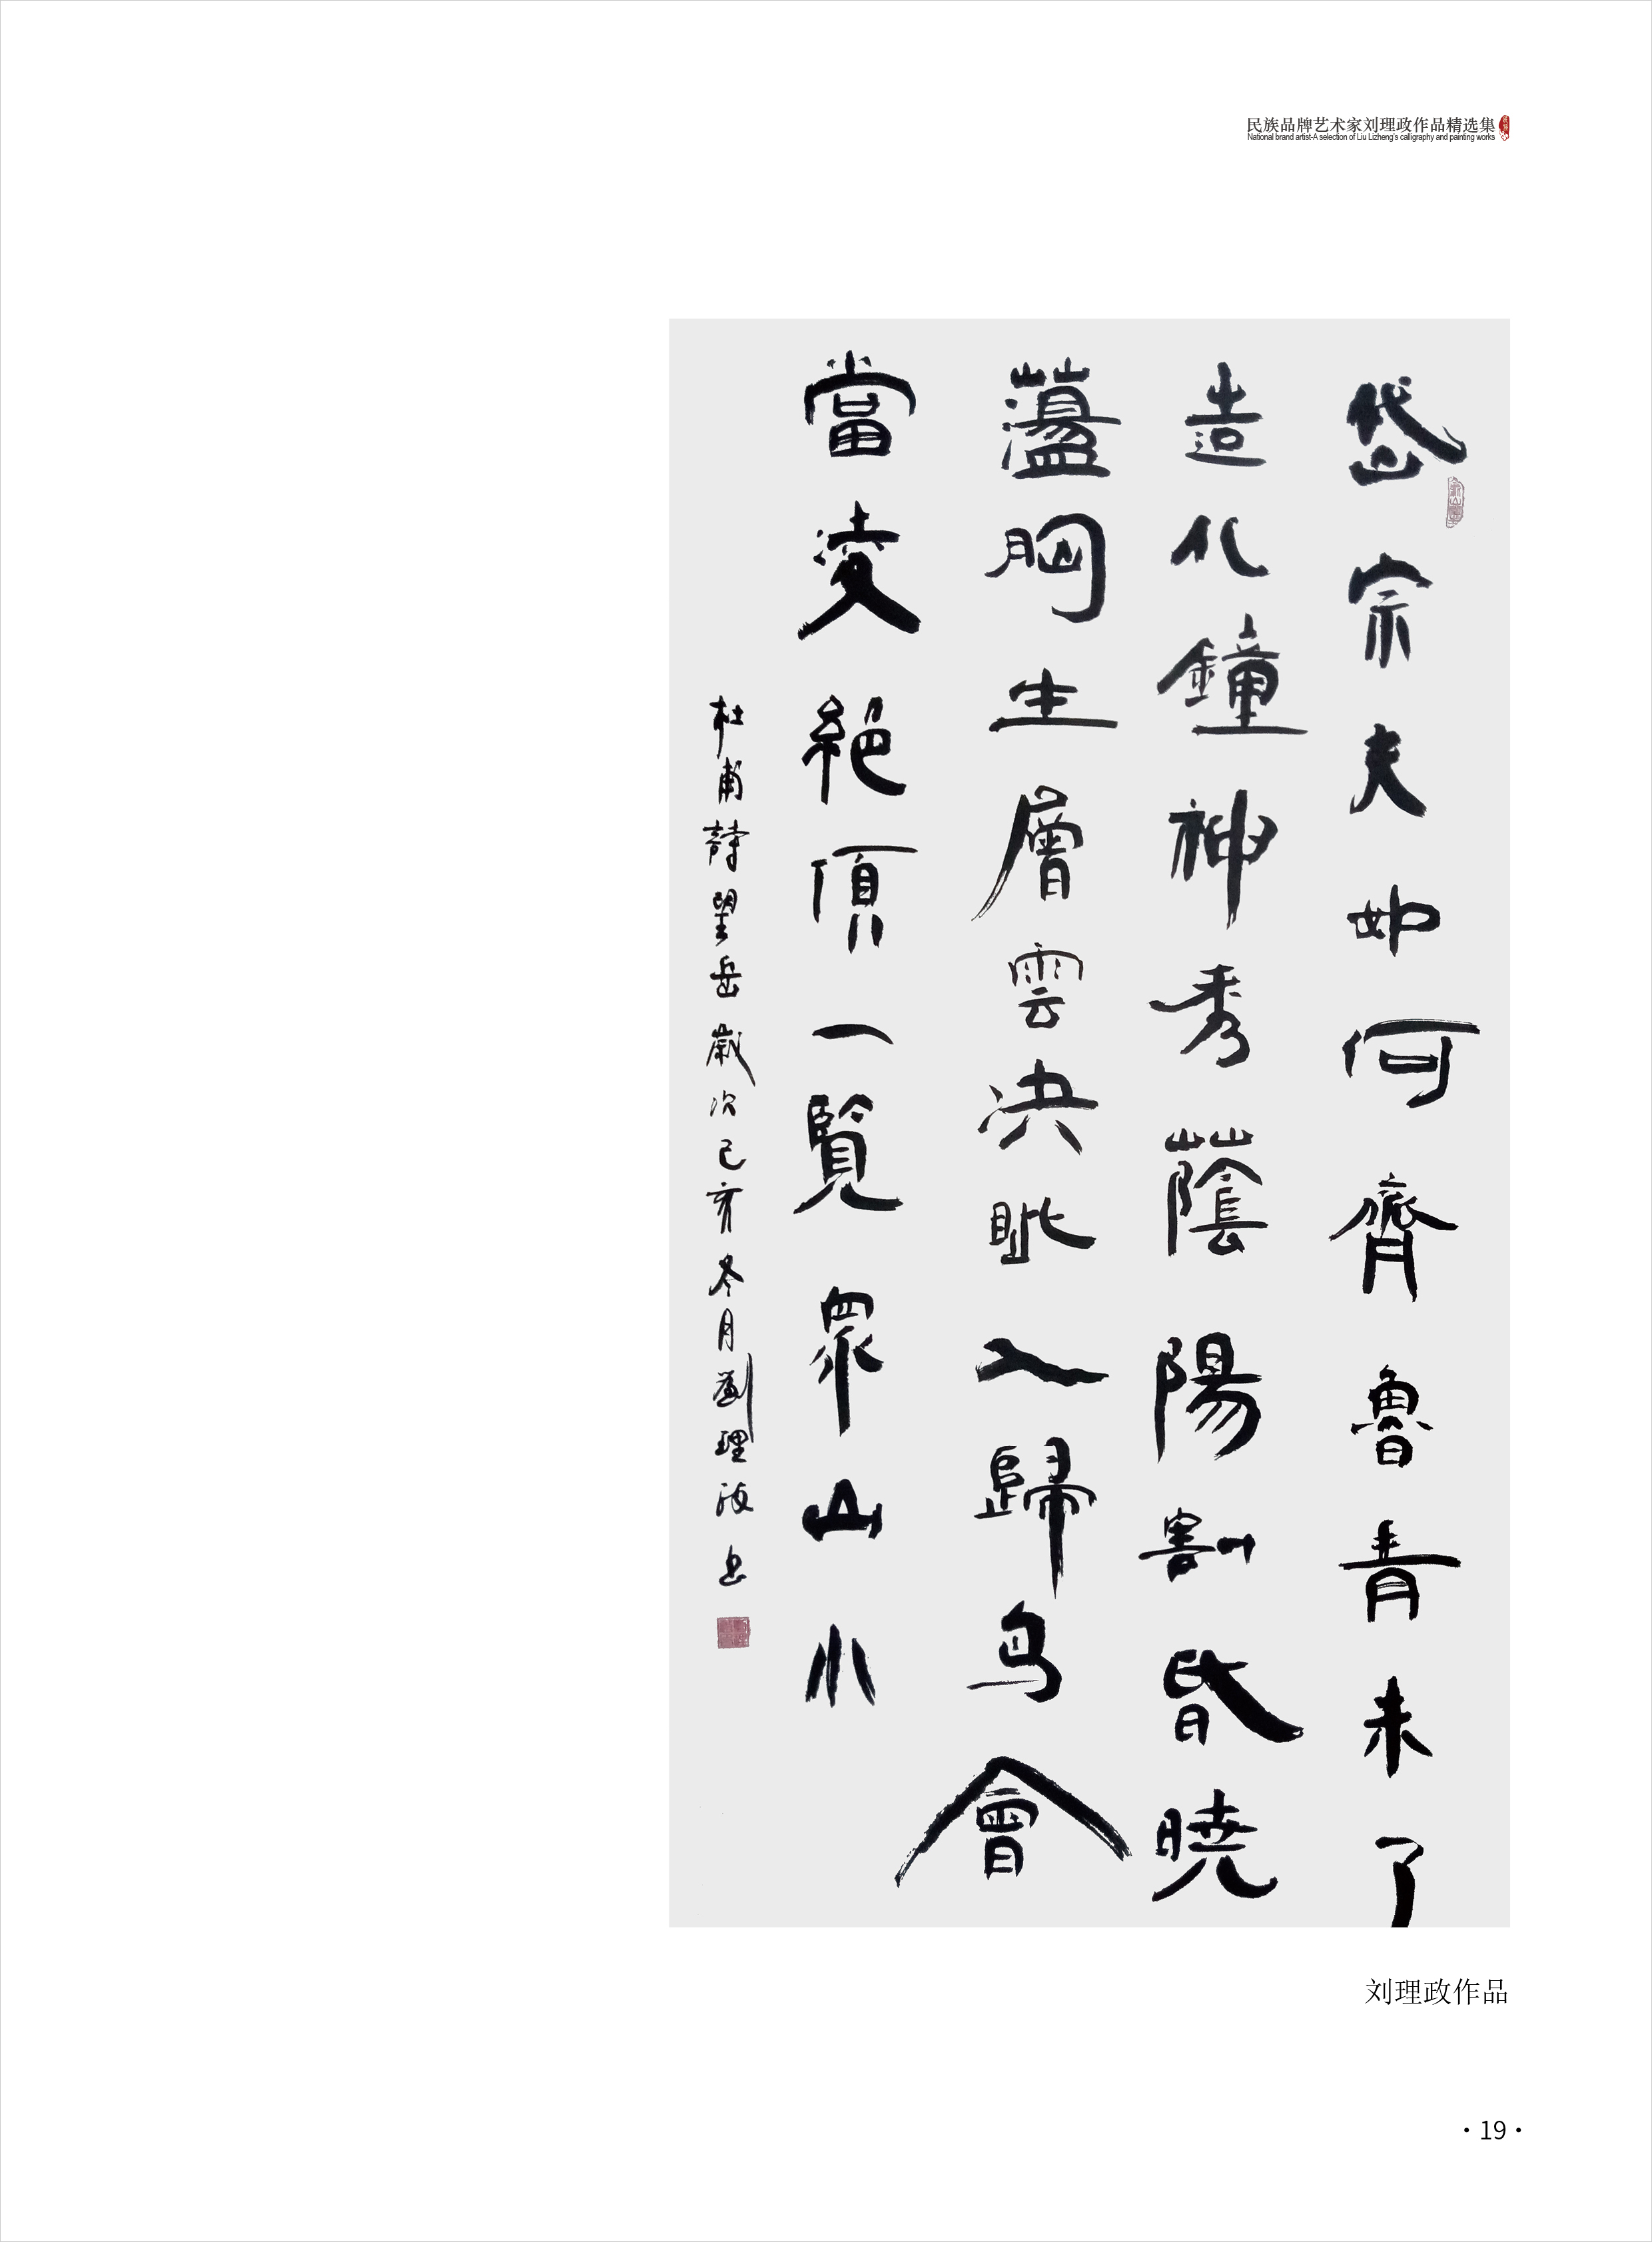 民族品牌艺术家刘理政作品精选集
National brand artist-A selection of Liu Lizheng's calligraphy and painting works
岱宗夫如何齊魯青未了
造化鐘神秀蔭陽割昏曉
蕩胸生層雲決眦入歸鸟會
當凌絕頂一覽眾山小
杜甫詩望岳歲次己亥冬月劉理政书
刘理政作品
·19·